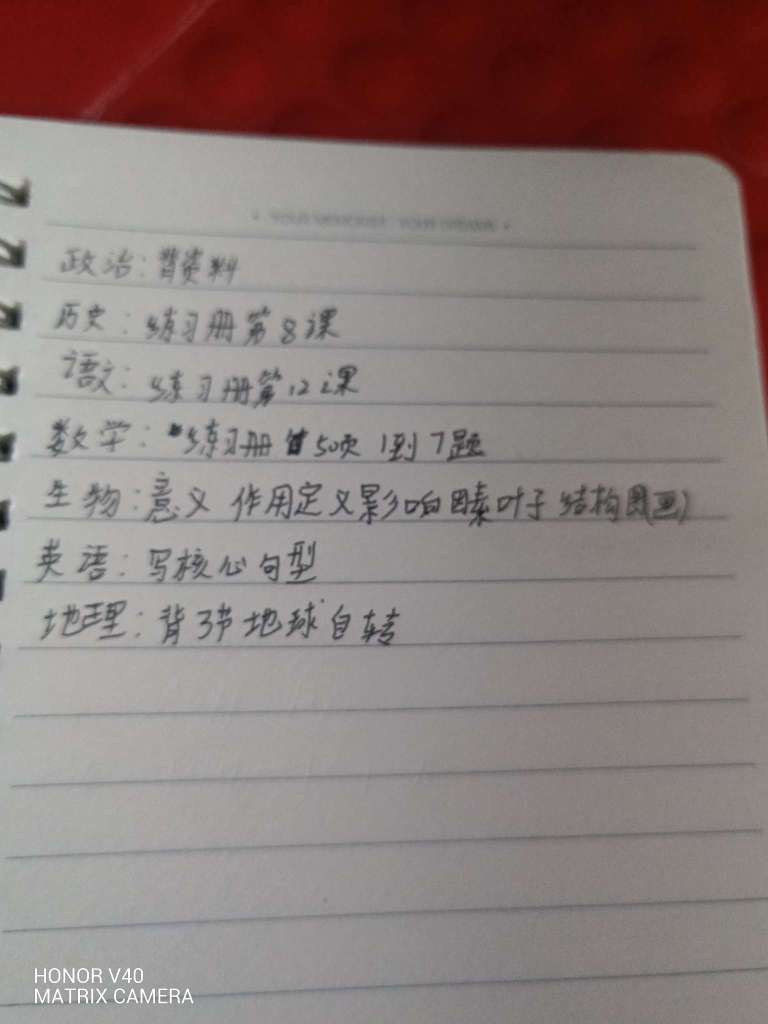 政治:背资料
历史:练习册第8课
语文:练习册第12课
数学:练习册50页1到7题
生物:意义 作用定义影响因素叶子结构图(画)
英语:写核心句型
地理:背3节地球自转
HONOR V40
MATRIX CAMERA